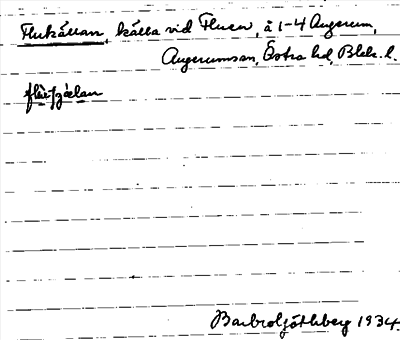 Flukällan, källa vid Fluen, å 1-4 Augerum,
Augerumsån, Östra hd, Blek. l.
Barbro Ljöthberg 1934.